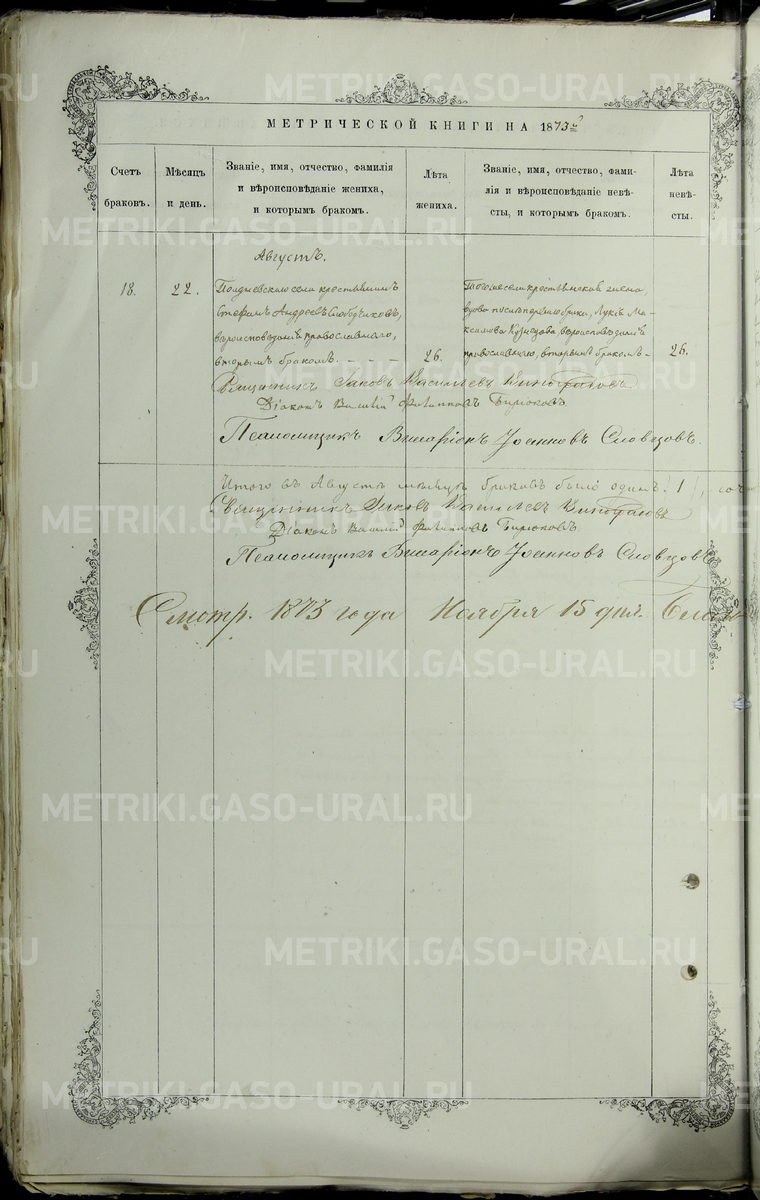 МЕТРИЧЕСКОЙ КНИГИ НА 1873й
Счетъ браковъ.
Мѣсяцъ и день.
Званіе, имя, отчество, фамилія
и вѣроисповѣданіе жениха,
и которымъ бракомъ.
Лѣта жениха.
Званіе, имя, отчество, фами-
лія и вѣроисповѣданіе невѣ-
сты, и которымъ бракомъ.
Лѣта невѣ-
сты.
Августъ.
18.
22.
села крестьянинъ
Стефанъ Андреевъ Слободчиковъ,
вѣроисповѣданія православнаго,
вторымъ бракомъ.
26.
Тогоже села крестьянская
вдова послѣ перваго брака, Мак-
симова Кузнецова вѣроисповѣданія
православнаго, вторымъ бракомъ
26.
Священникъ Іаковъ Васильевъ Виноградовъ
Діаконъ Василій Филипповъ Бирюковъ
Псаломщикъ Виларіонъ Іоанновъ Словцовъ.
Итого въ Августѣ мѣсяцѣ браковъ было одинъ (1),
Священникъ Іаковъ Васильевъ Виноградовъ
Діаконъ Василій Филипповъ Бирюковъ
Псаломщикъ Виларіонъ Іоанновъ Словцовъ
Смотр. 1873 года Ноября 15 дня.
METRIKI.GASO-URAL.RU